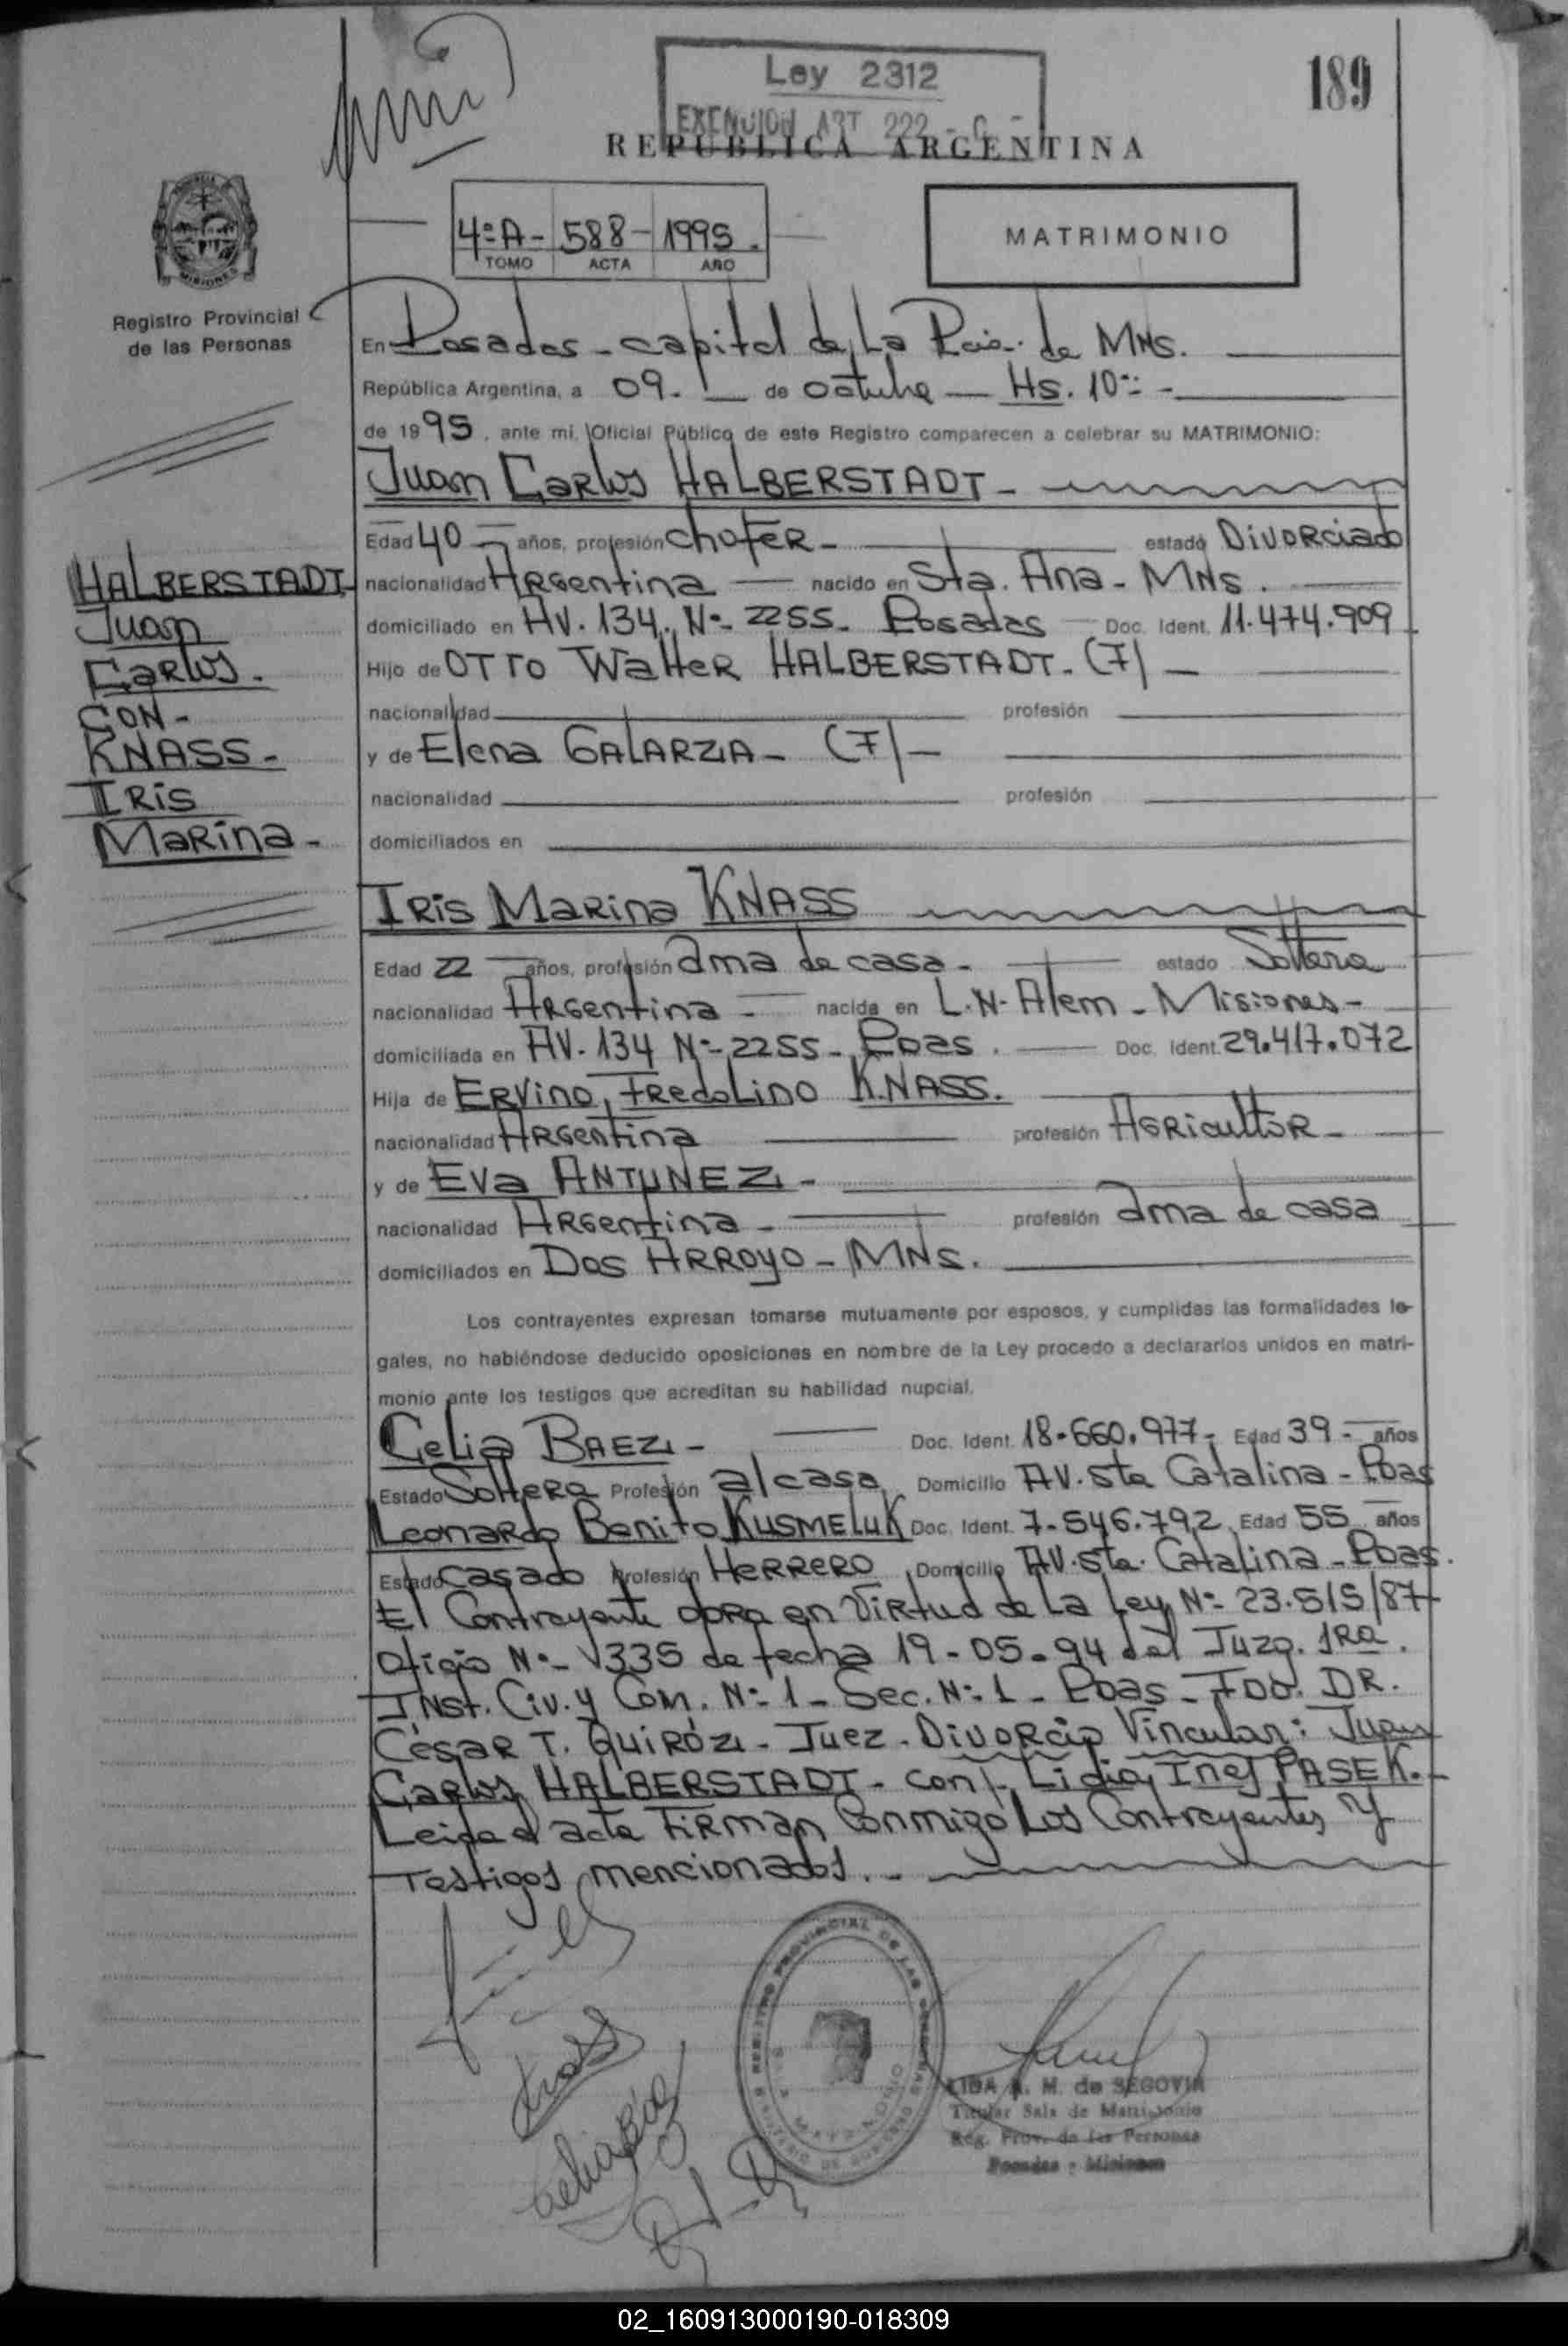 189
Ley 2312
EXENCION ART 222 - C -
REPUBLICA ARGENTINA
4º A - 588 - 1995.
TOMO ACTA AÑO
MATRIMONIO
Registro Provincial
de las Personas
En Posadas - capital de La Pcia. de MNS.
República Argentina, a 09. de octubre Hs. 10:: -
de 1995, ante mi, Oficial Público de este Registro comparecen a celebrar su MATRIMONIO:
Juan Carlos HALBERSTADT -
Edad 40 años, profesión chofer - estado Divorciado
nacionalidad Argentina nacido en Sta. Ana - MNS.
domiciliado en AV. 134. Nº 2255. Posadas Doc. Ident. 11.474.909
Hijo de OTTO Walter HALBERSTADT. (F)
nacionalidad profesión
y de Elena GALARZA - (F)
nacionalidad profesión
domiciliados en
HALBERSTADT
Juan
Carlos.
CON -
KNASS -
IRis
MARina -
IRis MARina KNASS
Edad 22 años, profesión ama de casa - estado Soltera
nacionalidad Argentina - nacida en L.N. Alem - Misiones -
domiciliada en AV. 134 Nº 2255 - Pdas. Doc. Ident. 29.417.072
Hija de ERVino, FRedoLino KNASS.
nacionalidad Argentina profesión AGRicultoR -
y de EVa ANTUNEZ -
nacionalidad Argentina - profesión ama de casa
domiciliados en Dos ARRoyo - MNS.
Los contrayentes expresan tomarse mutuamente por esposos, y cumplidas las formalidades le-
gales, no habiéndose deducido oposiciones en nombre de la Ley procedo a declararlos unidos en matri-
monio ante los testigos que acreditan su habilidad nupcial.
Celia BAEZ - Doc. Ident. 18.660.977 - Edad 39 - años
Estado Soltera Profesión a/casa Domicilio AV. Sta Catalina - Pdas
Leonardo Benito KUSMELUK Doc. Ident. 7.546.792 Edad 55 años
Estado casado Profesión HERRERO Domicilio AV. Sta. Catalina - Pdas.
El Contrayente obra en Virtud de La Ley Nº 23.515/87
Oficio Nº 1335 de fecha 19-05-94 del Juzg. 1Ra.
INst. Civ. y Com. Nº 1 - Sec. Nº 1 - Pdas - Fdo. DR.
César T. QUIRÓZ - Juez - Divorcio Vincular: Juan
Carlos HALBERSTADT - con/. Lidia Ines PASEK.
Leida el acta FiRman Conmigo Los Contrayentes y
Testigos mencionados. -
REGISTRO PROVINCIAL DE LAS PERSONAS
LIDA A. M. de SEGOVIA
Titular Sala de Matrimonio
Reg. Prov. de las Personas
Posadas - Misiones
02_160913000190-018309